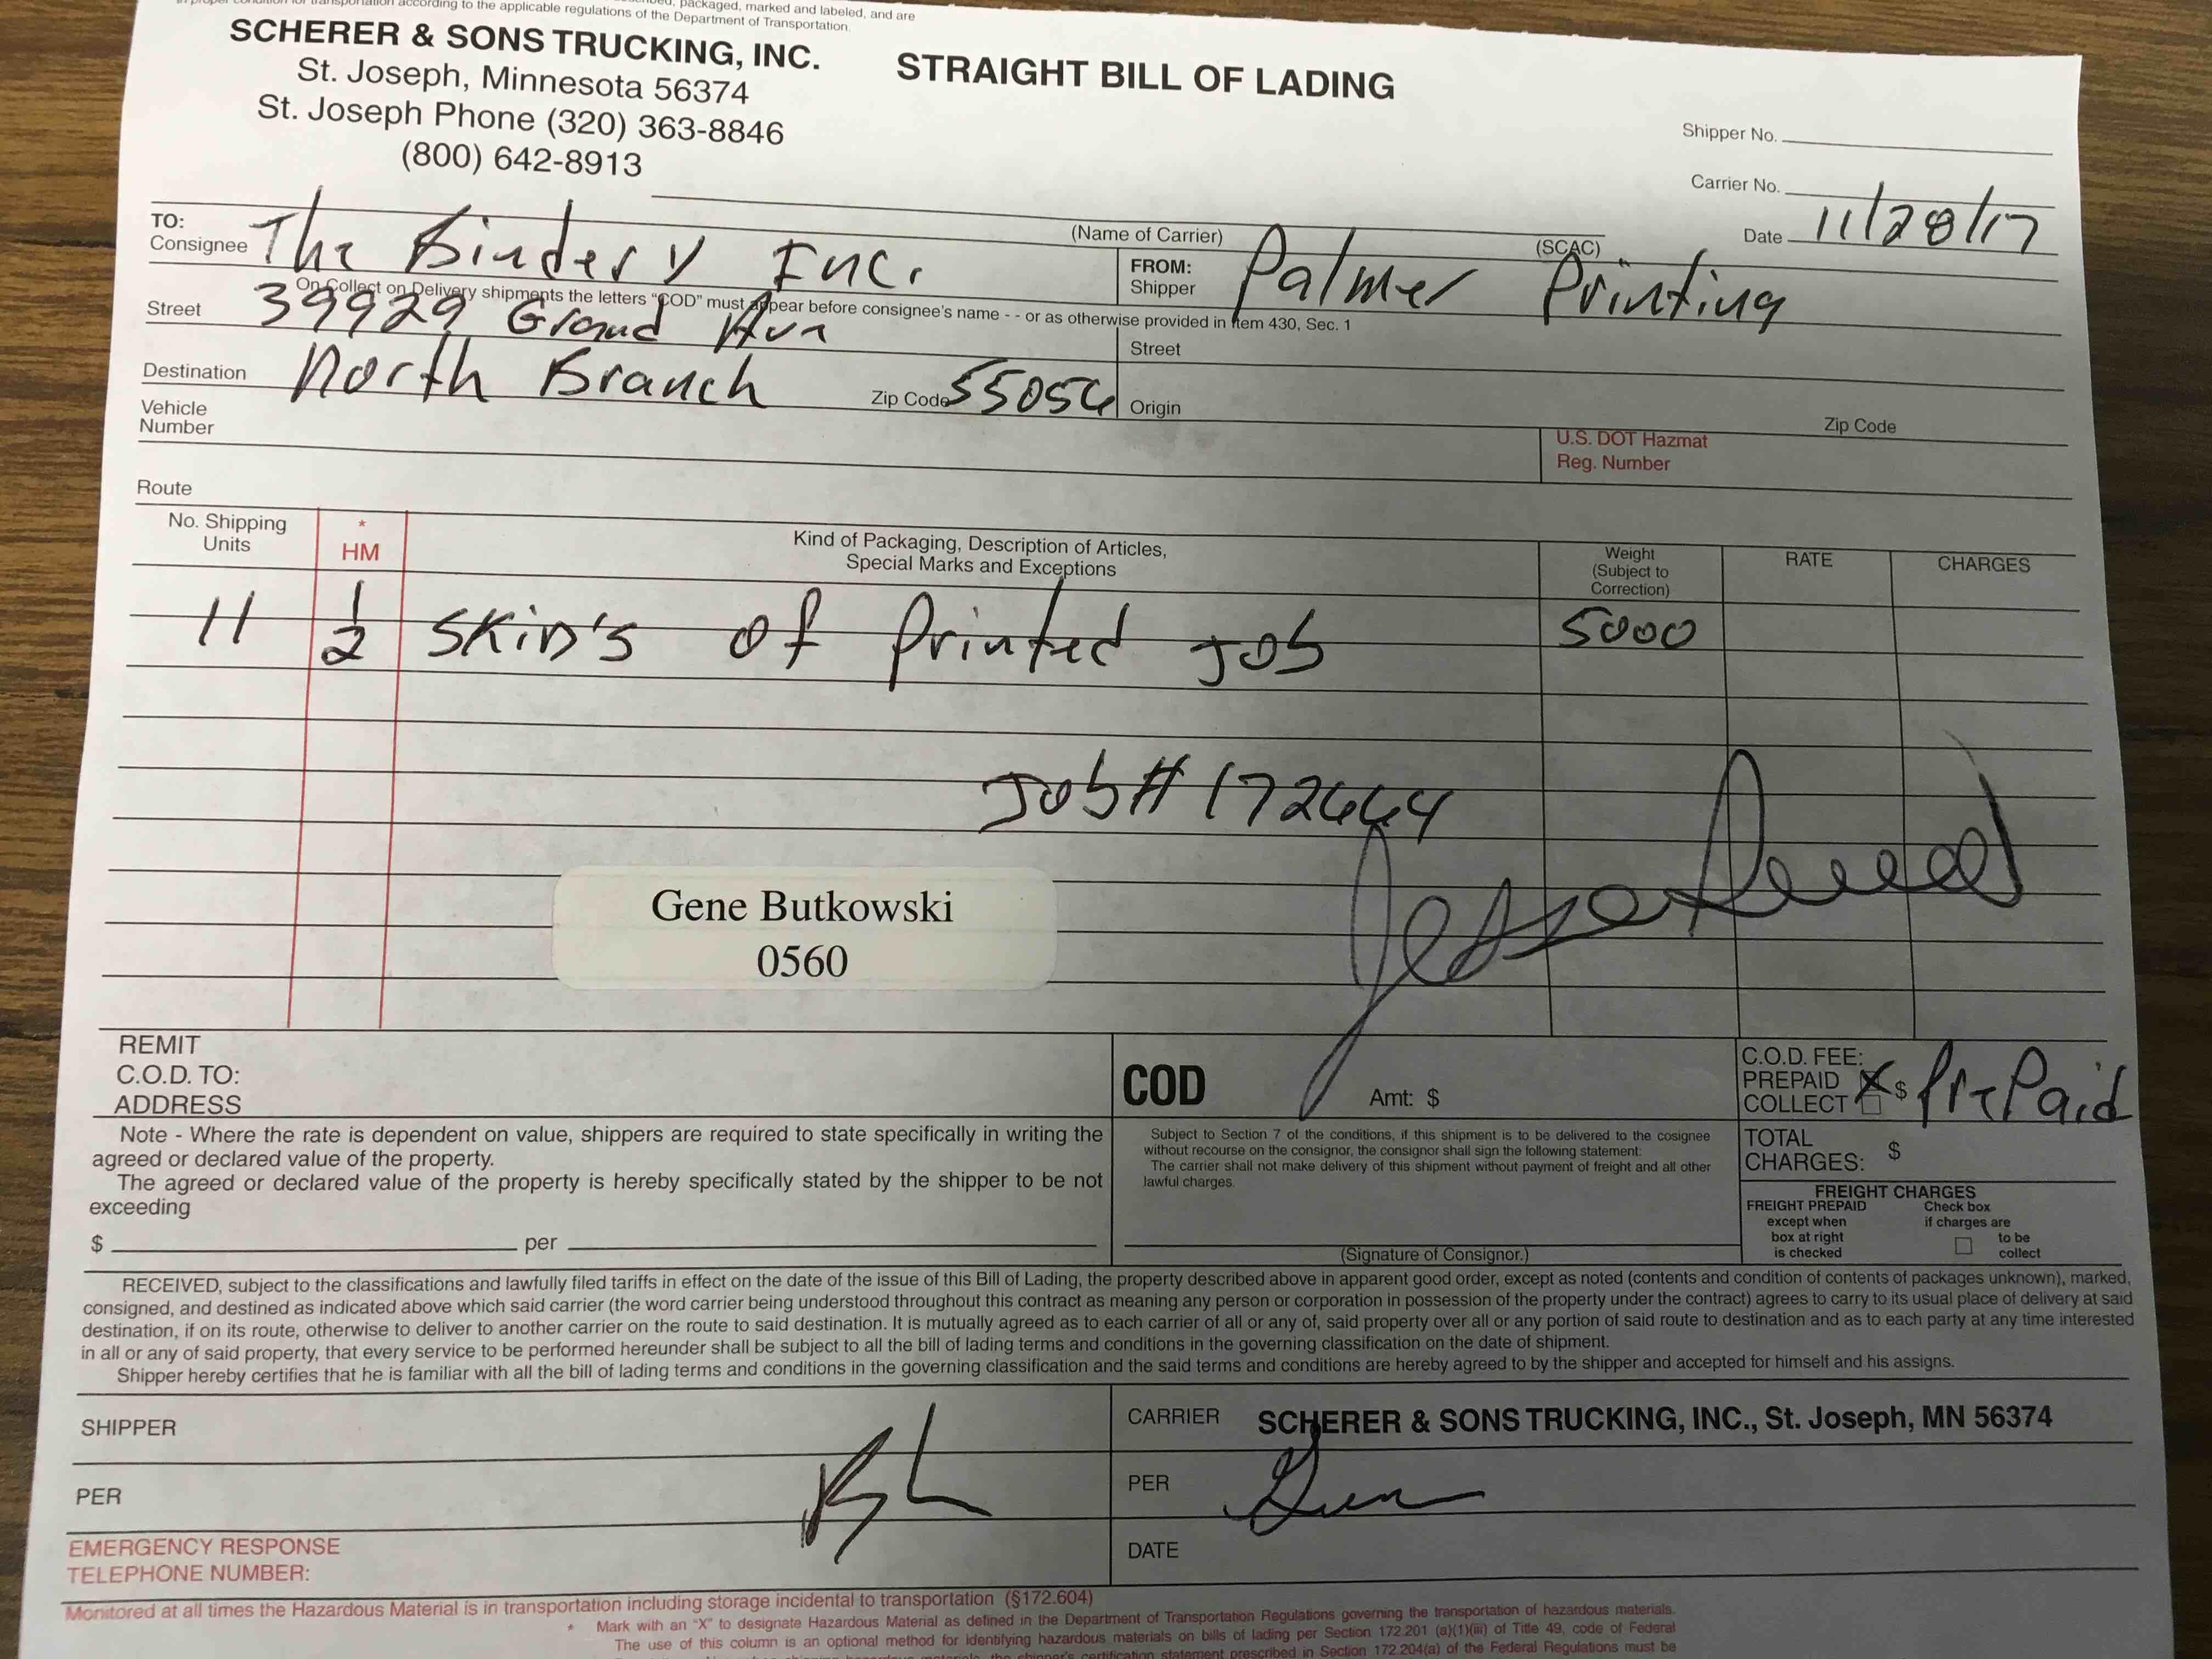 according to the applicable regulations of the Department of Transportation.
packaged, marked and labeled, and are
SCHERER & SONS TRUCKING, INC.
St. Joseph, Minnesota 56374
St. Joseph Phone (320) 363-8846
(800) 642-8913
STRAIGHT BILL OF LADING
Shipper No.
Carrier No.
Date 11/28/17
(Name of Carrier) (SCAC)
TO:
Consignee The Bindery Inc.
FROM:
Shipper Palmer Printing
On Collect on Delivery shipments the letters "COD" must appear before consignee's name - - or as otherwise provided in Item 430, Sec. 1
Street 39929 Grand Ave
Street
Destination North Branch Zip Code 55056
Origin Zip Code
Vehicle
Number
U.S. DOT Hazmat
Reg. Number
Route
No. Shipping
Units
*
HM
Kind of Packaging, Description of Articles,
Special Marks and Exceptions
Weight
(Subject to
Correction)
RATE
CHARGES
11 1/2 SKID'S of Printed Job 5000
Job# 172664
Gene Butkowski
0560
REMIT
C.O.D. TO:
ADDRESS
COD
Amt: $
C.O.D. FEE:
PREPAID X
COLLECT
$ PrePaid
Note - Where the rate is dependent on value, shippers are required to state specifically in writing the
agreed or declared value of the property.
The agreed or declared value of the property is hereby specifically stated by the shipper to be not
exceeding
$ per
Subject to Section 7 of the conditions, if this shipment is to be delivered to the cosignee
without recourse on the consignor, the consignor shall sign the following statement:
The carrier shall not make delivery of this shipment without payment of freight and all other
lawful charges.
(Signature of Consignor.)
TOTAL
CHARGES: $
FREIGHT CHARGES
FREIGHT PREPAID
except when
box at right
is checked
Check box
if charges are
to be
collect
RECEIVED, subject to the classifications and lawfully filed tariffs in effect on the date of the issue of this Bill of Lading, the property described above in apparent good order, except as noted (contents and condition of contents of packages unknown), marked,
consigned, and destined as indicated above which said carrier (the word carrier being understood throughout this contract as meaning any person or corporation in possession of the property under the contract) agrees to carry to its usual place of delivery at said
destination, if on its route, otherwise to deliver to another carrier on the route to said destination. It is mutually agreed as to each carrier of all or any of, said property over all or any portion of said route to destination and as to each party at any time interested
in all or any of said property, that every service to be performed hereunder shall be subject to all the bill of lading terms and conditions in the governing classification on the date of shipment.
Shipper hereby certifies that he is familiar with all the bill of lading terms and conditions in the governing classification and the said terms and conditions are hereby agreed to by the shipper and accepted for himself and his assigns.
SHIPPER
CARRIER SCHERER & SONS TRUCKING, INC., St. Joseph, MN 56374
PER
PER
EMERGENCY RESPONSE
TELEPHONE NUMBER:
DATE
Monitored at all times the Hazardous Material is in transportation including storage incidental to transportation (§172.604)
* Mark with an "X" to designate Hazardous Material as defined in the Department of Transportation Regulations governing the transportation of hazardous materials.
The use of this column is an optional method for identifying hazardous materials on bills of lading per Section 172.201 (a)(1)(iii) of Title 49, code of Federal
shipper's certification statement prescribed in Section 172.204(a) of the Federal Regulations must be